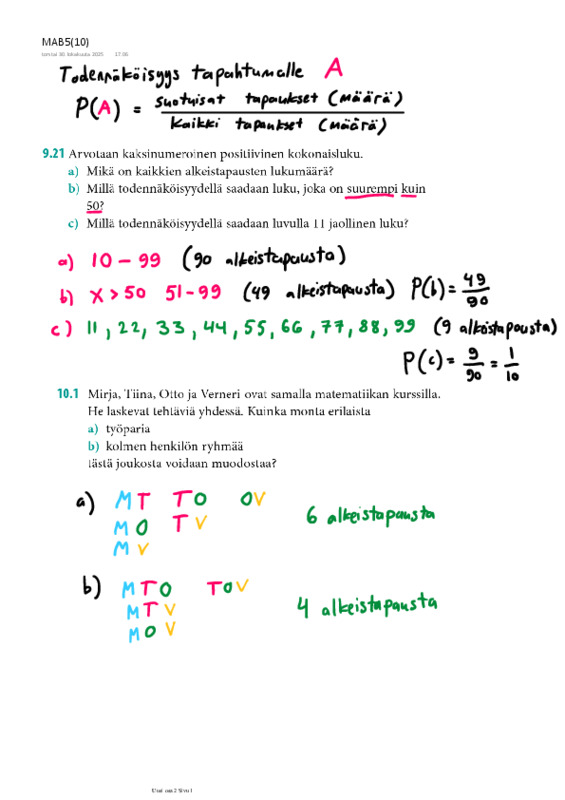 MAB5(10)
torstai 30. lokakuuta 2025 17.06
Todennäköisyys tapahtumalle A
P(A) = suotuisat tapaukset (määrä)
kaikki tapaukset (määrä)
9.21 Arvotaan kaksinumeroinen positiivinen kokonaisluku.
a) Mikä on kaikkien alkeistapausten lukumäärä?
b) Millä todennäköisyydellä saadaan luku, joka on suurempi kuin
50?
c) Millä todennäköisyydellä saadaan luvulla 11 jaollinen luku?
a) 10 – 99 (90 alkeistapausta)
b) x > 50 51 - 99 (49 alkeistapausta) P(b) = 49/90
c) 11, 22, 33, 44, 55, 66, 77, 88, 99 (9 alkeistapausta)
P(c) = 9/90 = 1/10
10.1 Mirja, Tiina, Otto ja Verneri ovat samalla matematiikan kurssilla.
He laskevat tehtäviä yhdessä. Kuinka monta erilaista
a) työparia
b) kolmen henkilön ryhmää
tästä joukosta voidaan muodostaa?
a) MT TO OV
MO TV 6 alkeistapausta
MV
b) MTO TOV
MTV 4 alkeistapausta
MOV